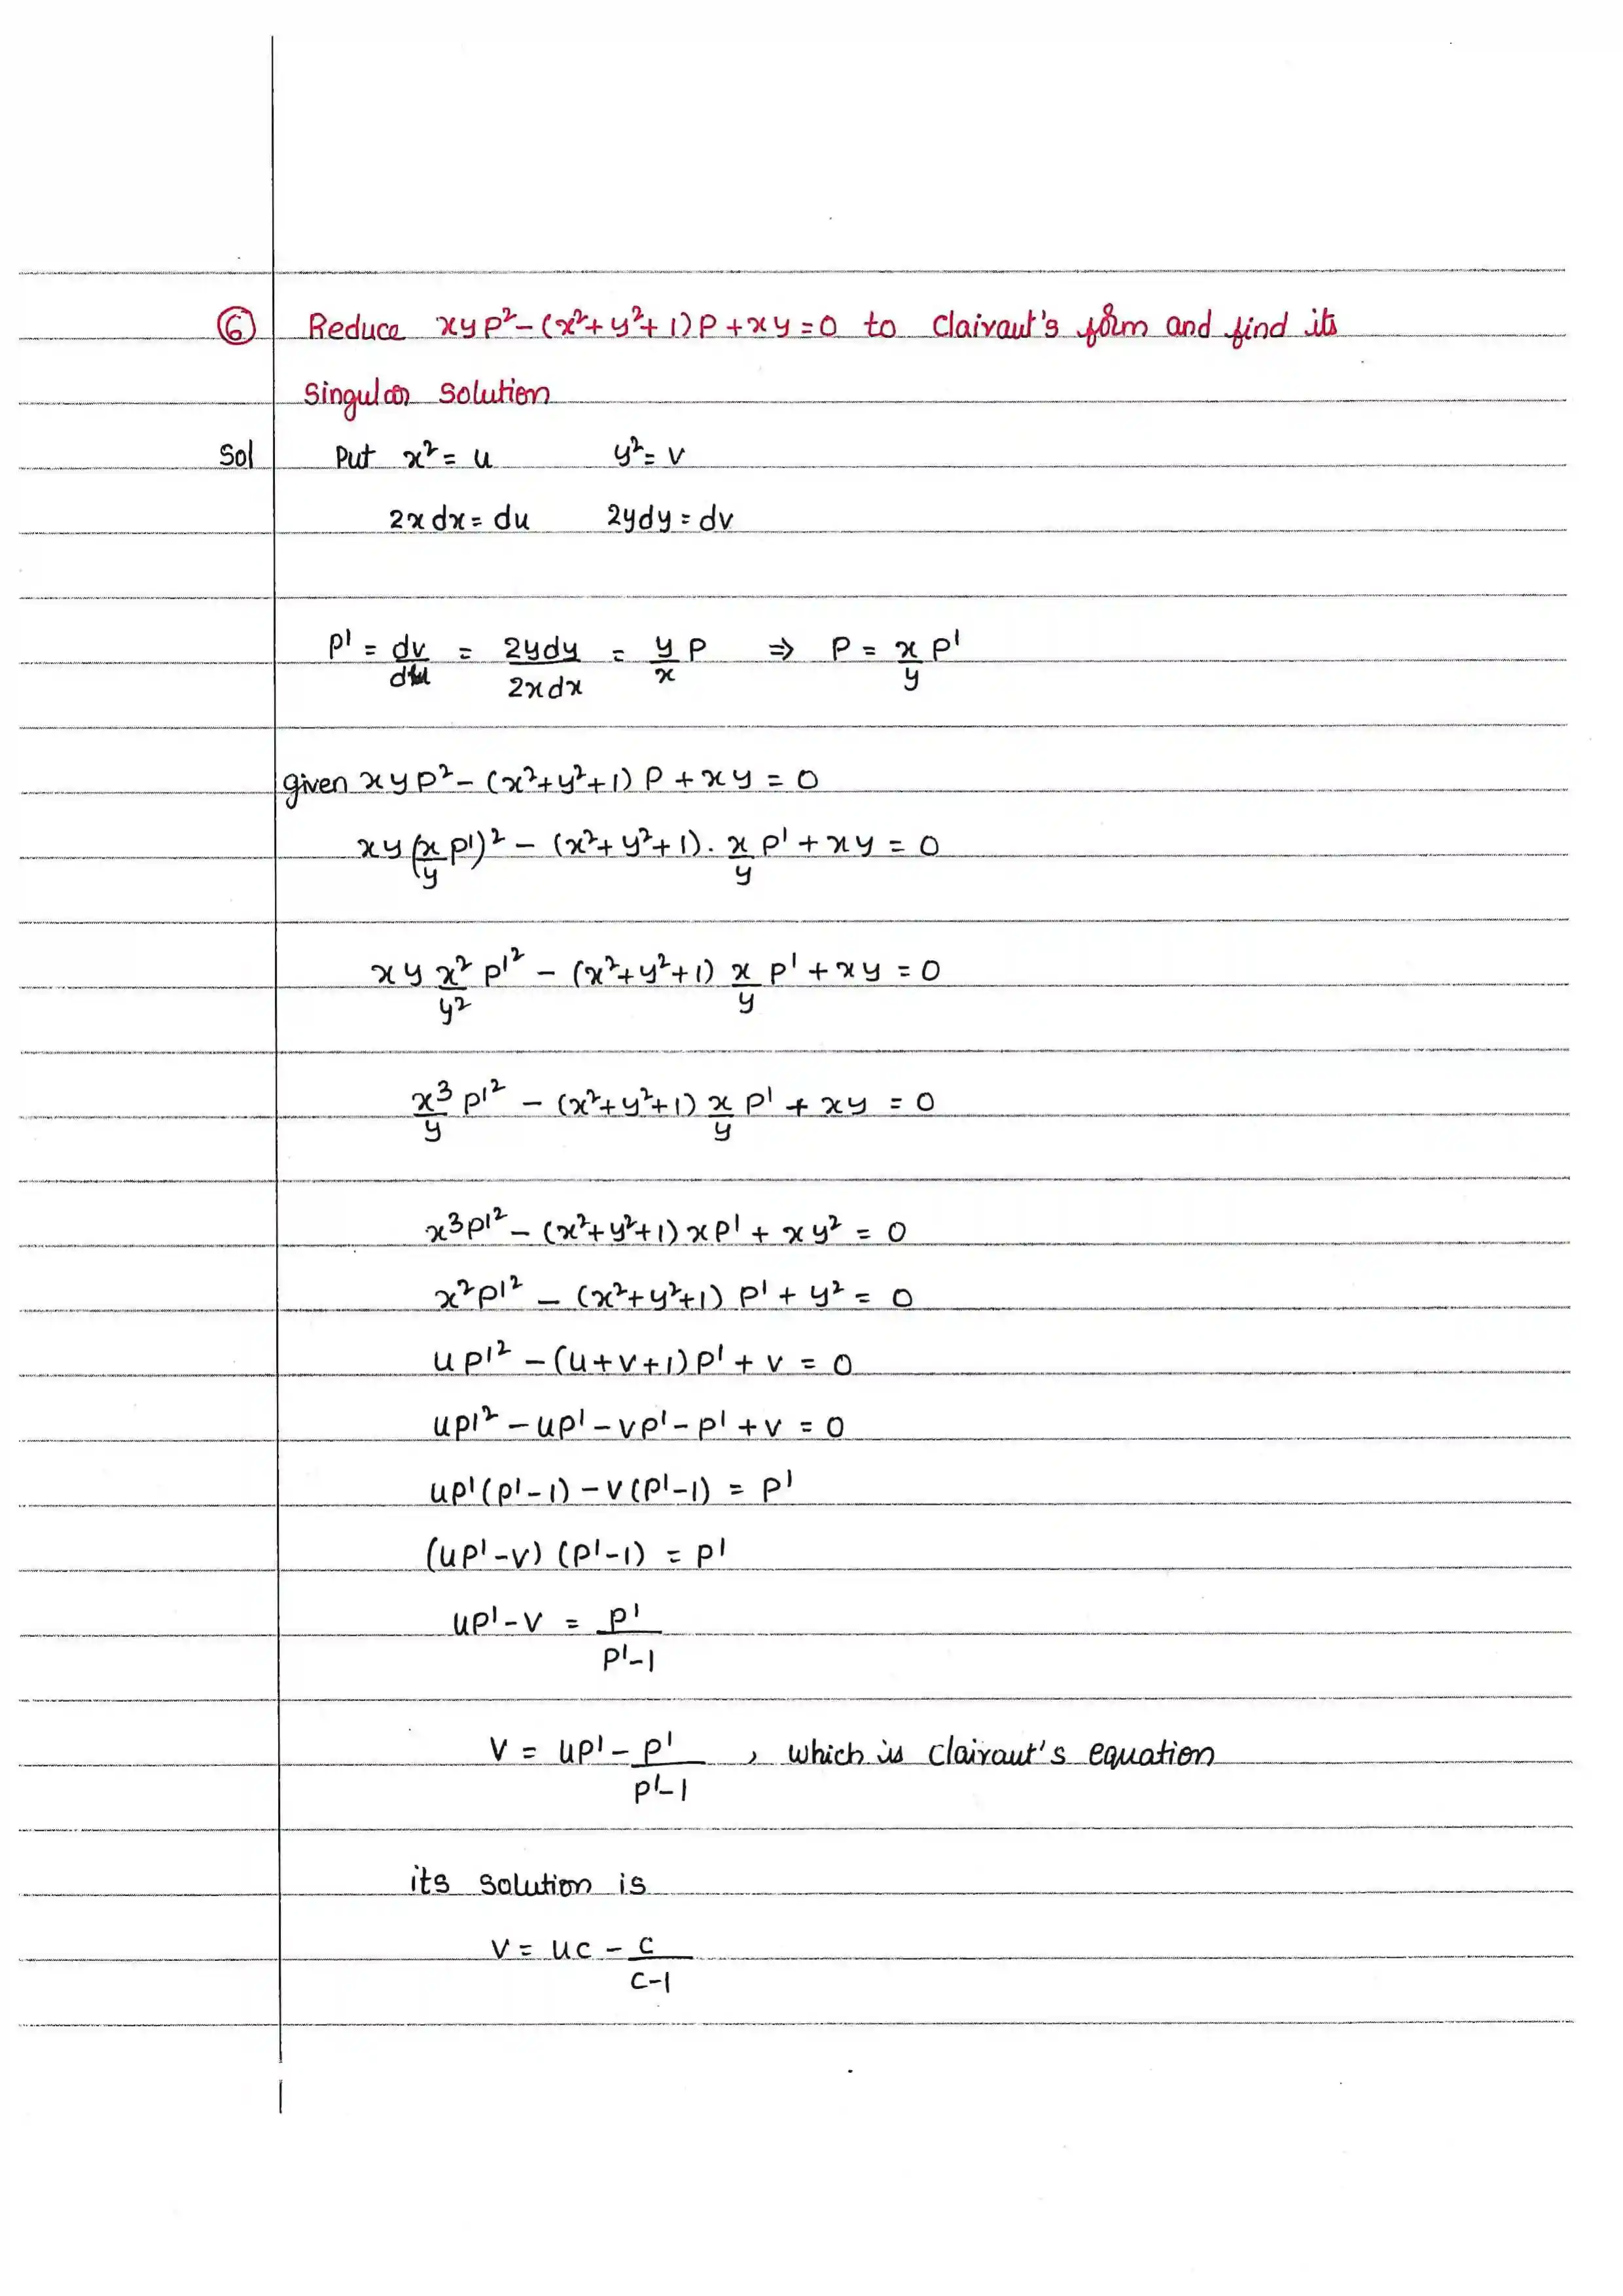 ⑥ Reduce xyp² - (x²+y²+1)p + xy = 0 to Clairaut's form and find its
Singular Solution
Sol Put x² = u y² = v
2xdx = du 2ydy = dv
p' = dv/du = 2ydy/2xdx = y/x p ⇒ p = x/y p'
given xyp² - (x²+y²+1)p + xy = 0
xy(x/y p')² - (x²+y²+1). x/y p' + xy = 0
xy x²/y² p'² - (x²+y²+1) x/y p' + xy = 0
x³/y p'² - (x²+y²+1) x/y p' + xy = 0
x³p'² - (x²+y²+1)xp' + xy² = 0
x²p'² - (x²+y²+1)p' + y² = 0
up'² - (u+v+1)p' + v = 0
up'² - up' - vp' - p' + v = 0
up'(p'-1) - v(p'-1) = p'
(up'-v)(p'-1) = p'
up'-v = p'/p'-1
v = up' - p'/p'-1 , which is Clairaut's equation
its solution is
v = uc - c/c-1